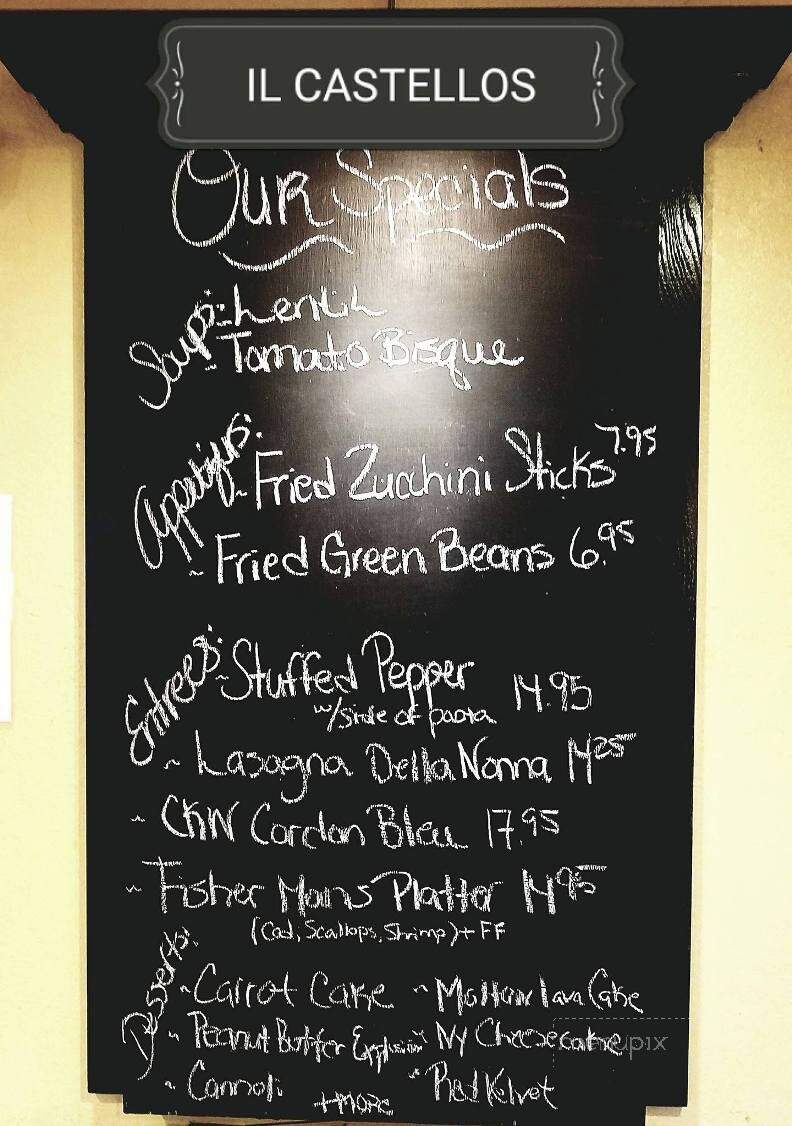 IL CASTELLOS
Our Specials
Soups: - Lentil
- Tomato Bisque
Appetizers: ~ Fried Zucchini Sticks 7.95
~ Fried Green Beans 6.95
Entrees: ~ Stuffed Pepper 14.95
w/side of pasta
~ Lasagna Della Nonna 14.25
~ CKN Cordon Bleu 17.95
~ Fisher Mans Platter 14.95
(Cod, Scallops, Shrimp) + FF
Desserts: ~ Carrot Cake ~ Moltan lava Cake
~ Peanut Butter Explosion ~ Ny Cheesecake
~ Cannoli ~ Red Velvet
+MORE
menupix